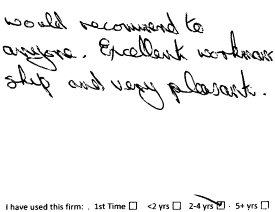 would recommend to
anyone. Excellent workman
ship and very pleasant.
I have used this firm: . 1st Time ☐ <2 yrs ☐ 2-4 yrs ☑ · 5+ yrs ☐